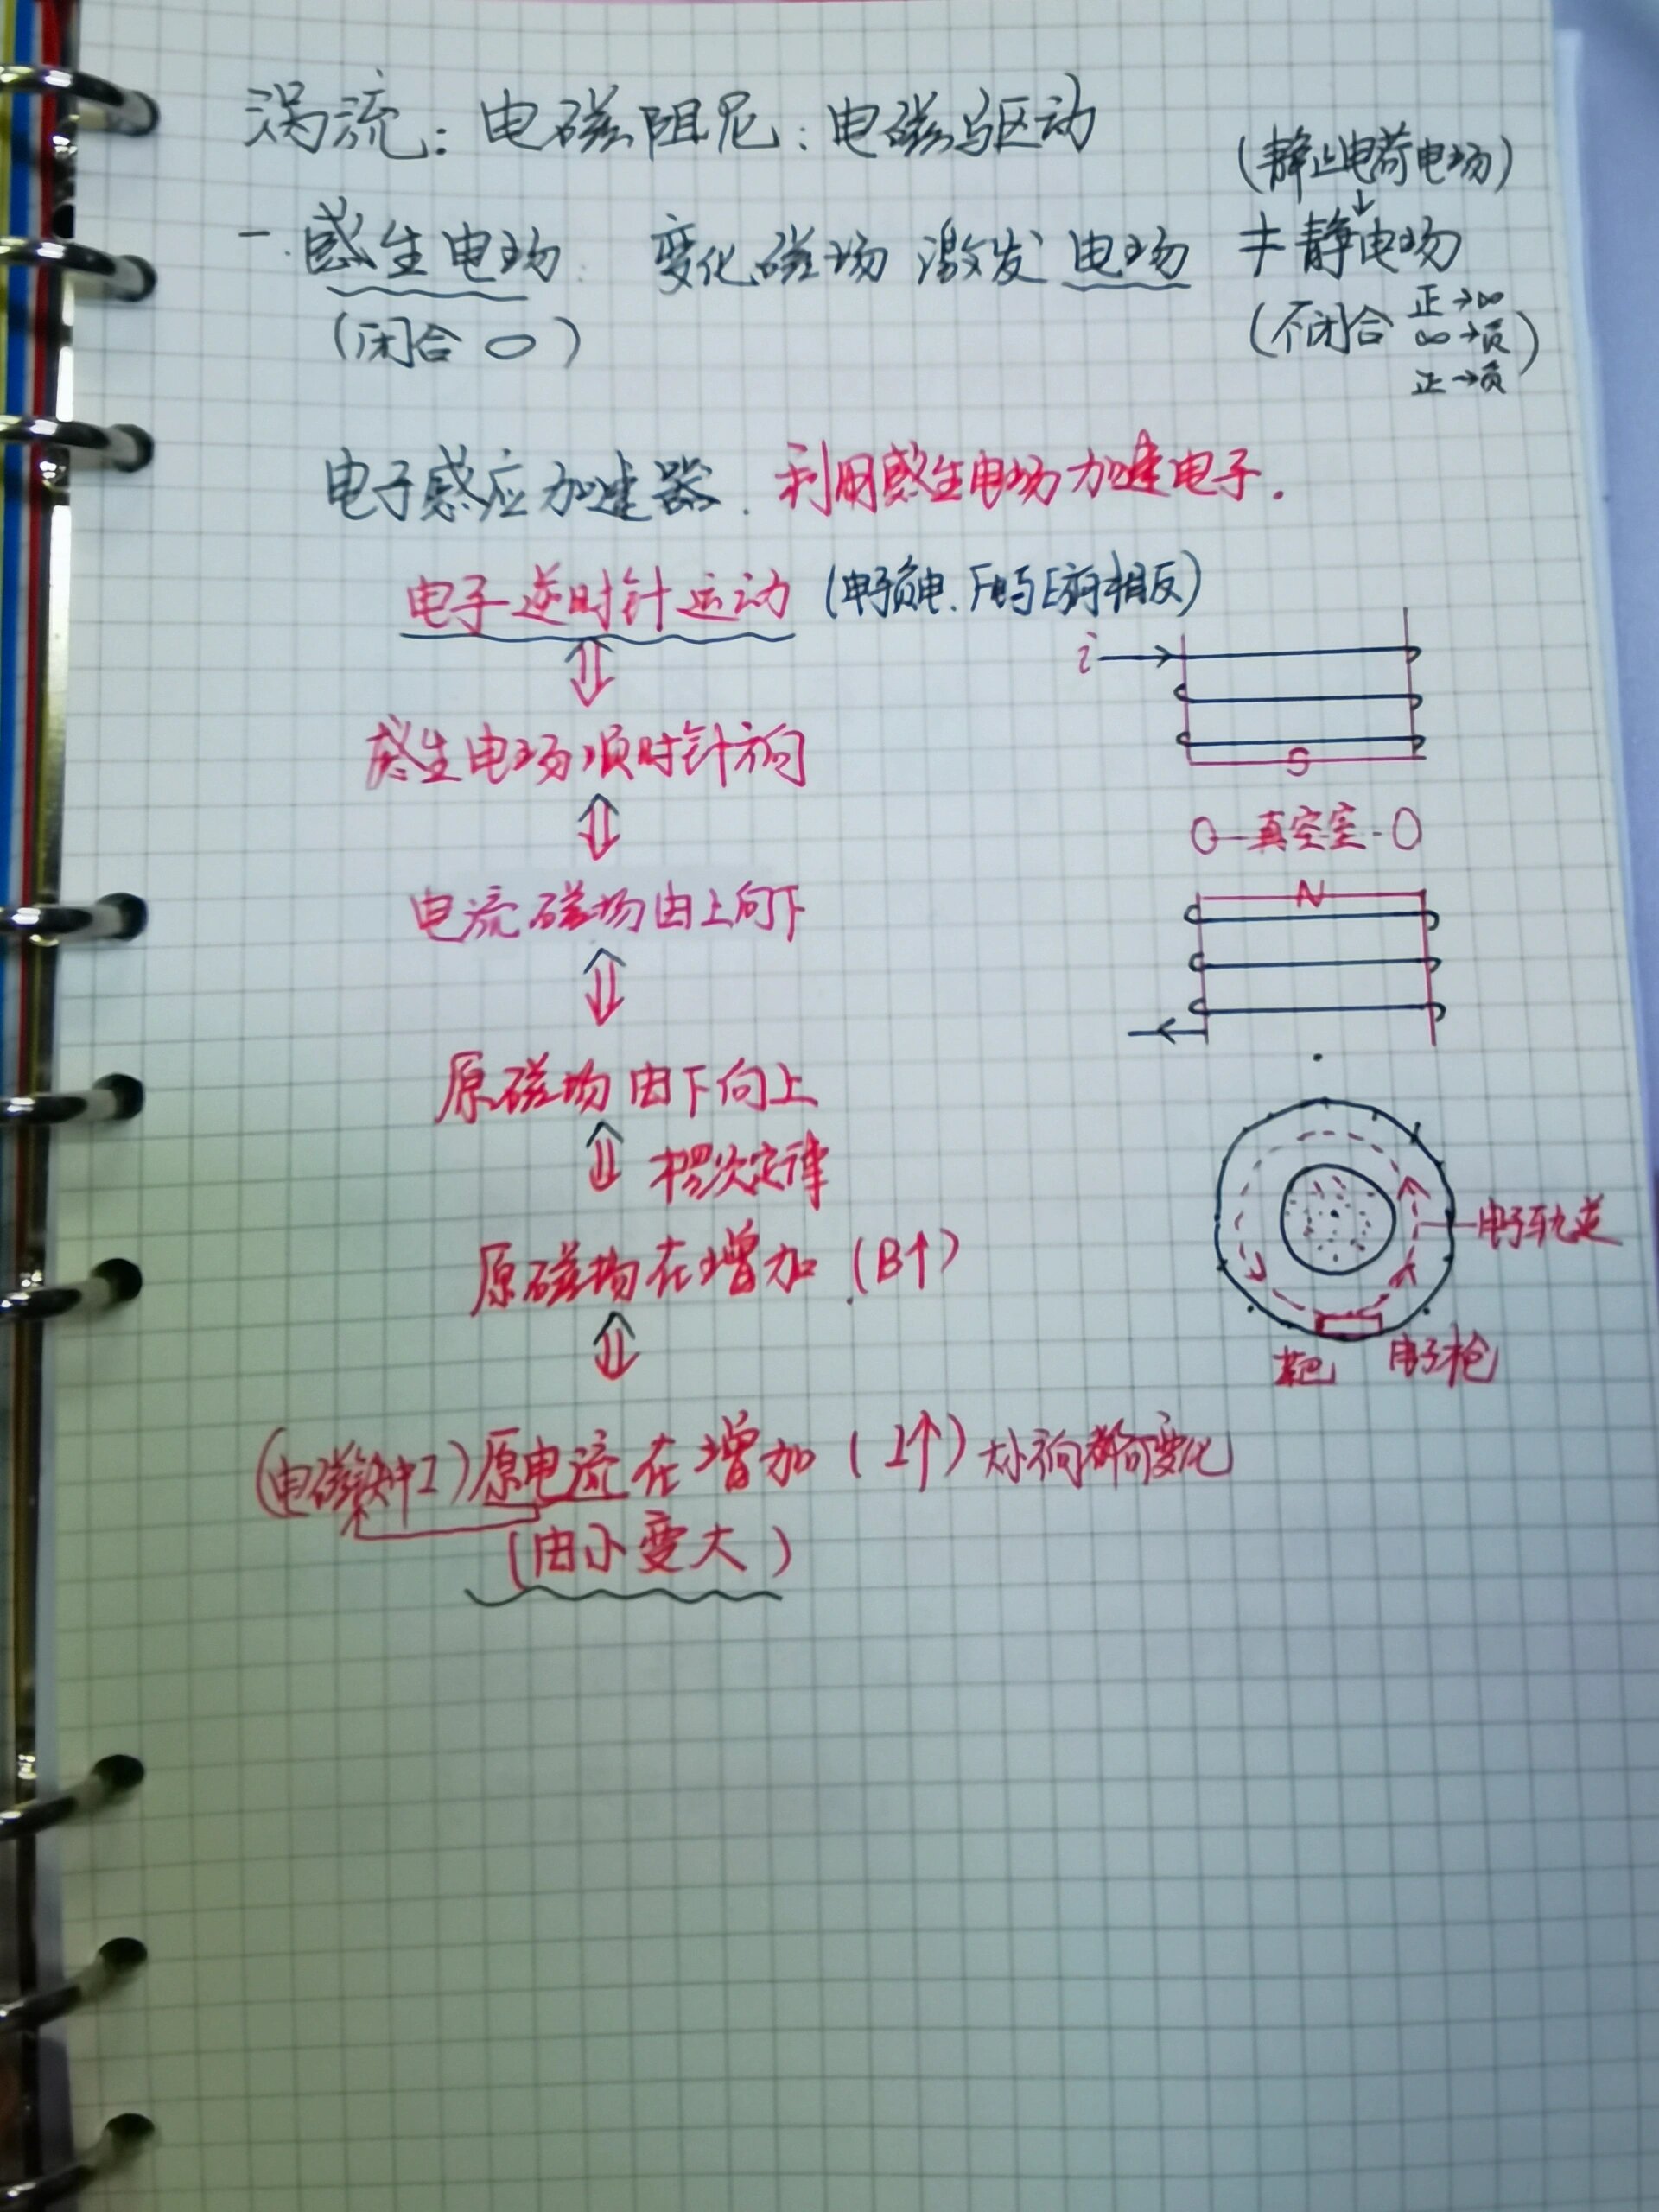 涡流：电磁阻尼：电磁驱动
(静止电荷电场)
↓
一.感生电场. 变化磁场 激发 电场 ≠静电场
(闭合 ○)
(不闭合 正→∞
∞→负
正→负)
电子感应加速器. 利用感生电场加速电子.
电子逆时针运动 (电子负电.F电与E方向相反)
i
感生电场顺时针方向
S
0—真空室-0
电流磁场由上向下
N
原磁场由下向上
楞次定律
原磁场在增加 (B↑)
电子轨道
靶 电子枪
(电磁铁中I)原电流在增加 (I↑) 大小方向都可变化
(由小变大)